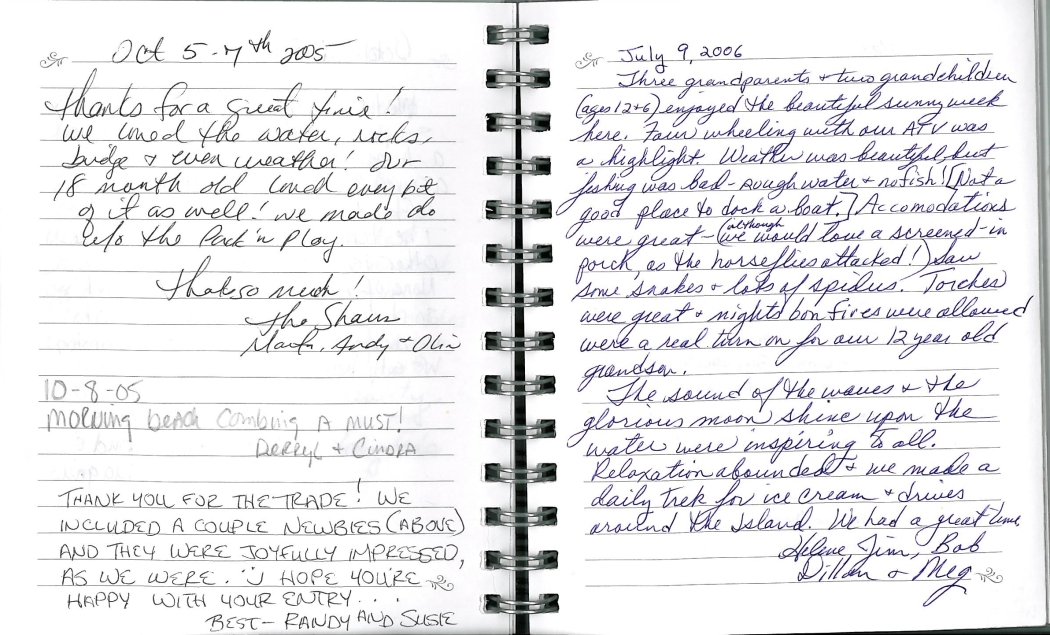 Oct 5-7th 2005
Thanks for a great time!
We loved the water, rocks,
bridge & even weather! Our
18 month old loved every bit
of it as well! We made do
w/o the Pack 'n Play.
Thanks so much!
The Shaws
Andy & Olin
10-8-05
MORNING beach combing A MUST!
DERRYL & CINDRA
THANK YOU FOR THE TRADE! WE
INCLUDED A COUPLE NEWBIES (ABOVE)
AND THEY WERE JOYFULLY IMPRESSED,
AS WE WERE. HOPE YOU'RE
HAPPY WITH YOUR ENTRY...
BEST- RANDY AND SUSIE
July 9, 2006
Three grandparents & two grandchildren
(ages 12+6) enjoyed the beautiful sunny week
here. Four wheeling with our ATV was
a highlight. Weather was beautiful but
fishing was bad - rough water & no fish! [Not a
good place to dock a boat.] Accomodations
were great - (although we would love a screened-in
porch, as the horseflies attacked!) Saw
some snakes & lots of spiders. Torches
were great & nights bon fires were allowed
were a real turn on for our 12 year old
grandson.
The sound of the waves & the
glorious moon shine upon the
water were inspiring to all.
Relaxation abounded & we made a
daily trek for ice cream & drives
around the Island. We had a great time
Helene, Jim, Bob
Dillon & Meg